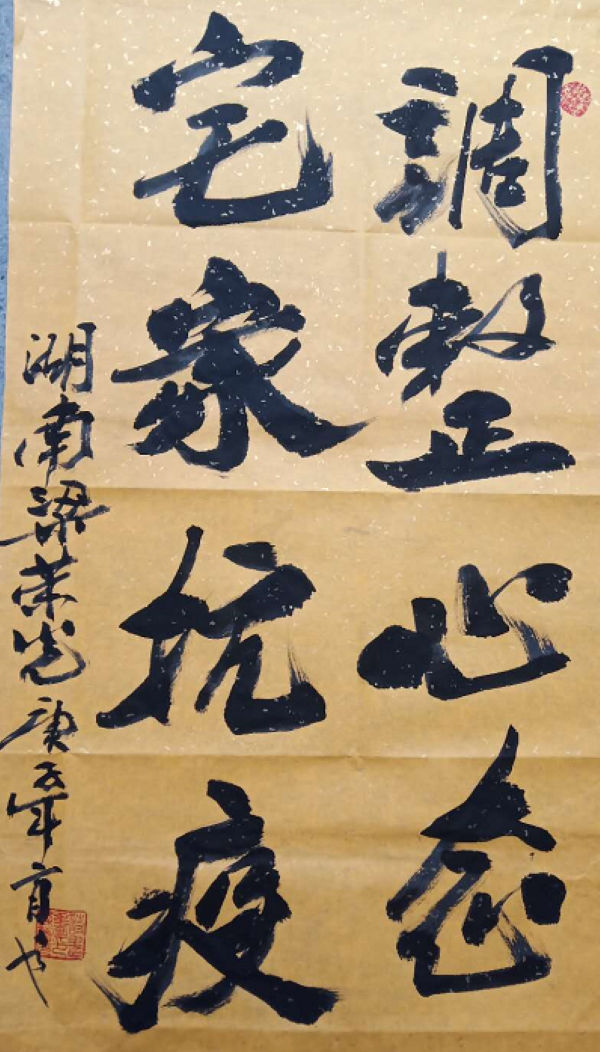 調整心态
宅家抗疫
湖南梁荣光庚子年